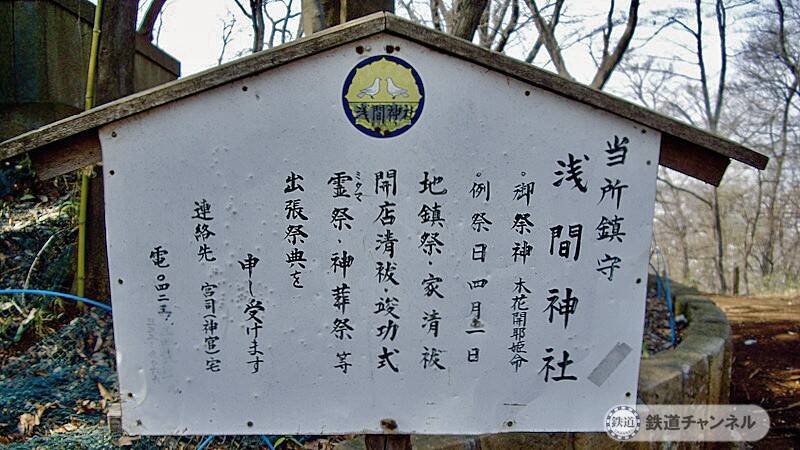 浅間神社
当所鎮守
浅間神社
御祭神 木花開耶姫命
例祭日 四月一日
地鎮祭・家清祓
開店清祓・竣功式
霊祭・神葬祭 等
ミタマ
出張祭典を
申し受けます
連絡先 宮司(神官)宅
電〇四二
鉄道
鉄道チャンネル